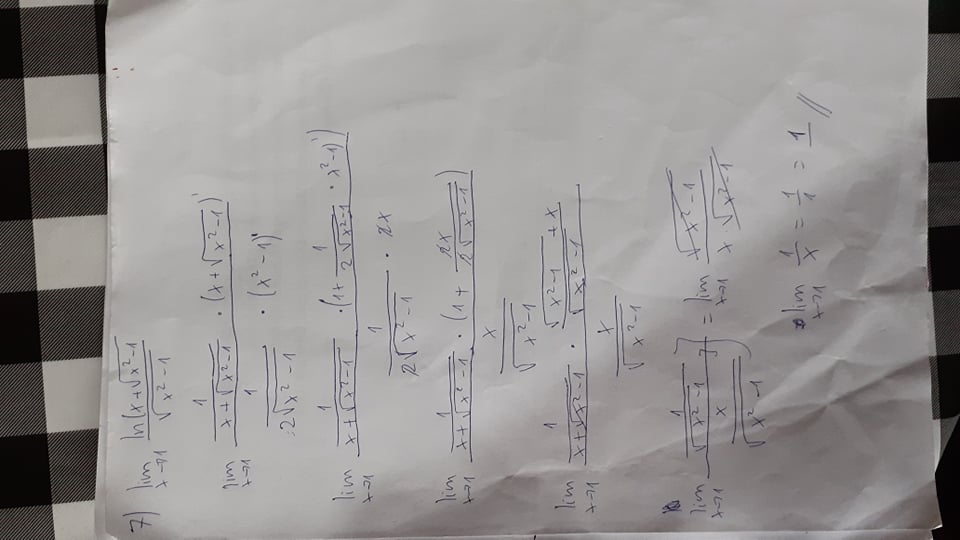 7) lim x→1 ln(x+√x²-1) / √x²-1
lim x→1 1/(x+√x²-1) · (x+√x²-1)' / 1/(2√x²-1) · (x²-1)'
lim x→1 1/(x+√x²-1) · (1+ 1/(2√x²-1) · x²-1)') / 1/(2√x²-1) · 2x
lim x→1 1/(x+√x²-1) · (1+ 2x/(2√x²-1)) / x/√x²-1
lim x→1 1/(x+√x²-1) · (√x²-1 +x)/√x²-1 / x/√x²-1
lim x→1 1/√x²-1 / x/√x²-1 = lim x→1 √x²-1 / x√x²-1
lim x→1 1/x = 1/1 = 1 //